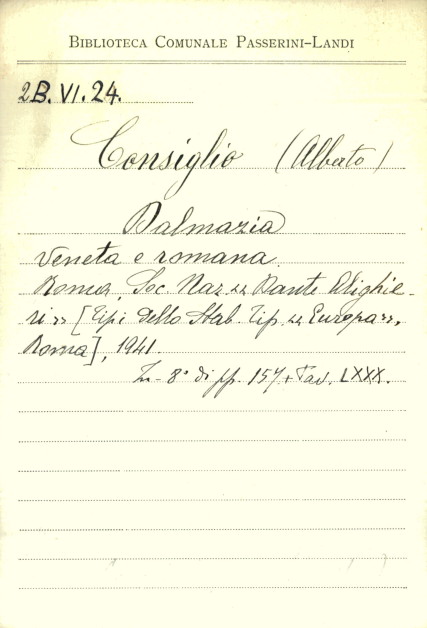 BIBLIOTECA COMUNALE PASSERINI-LANDI
2B.VI.24.
Consiglio (Alberto)
Dalmazia
veneta e romana
Roma, Soc. Naz. "Dante Alighie-
ri" [Tipi dello Stab. Tip. "Europa",
Roma], 1941.
In-8° di pp. 157+Tav. LXXX.